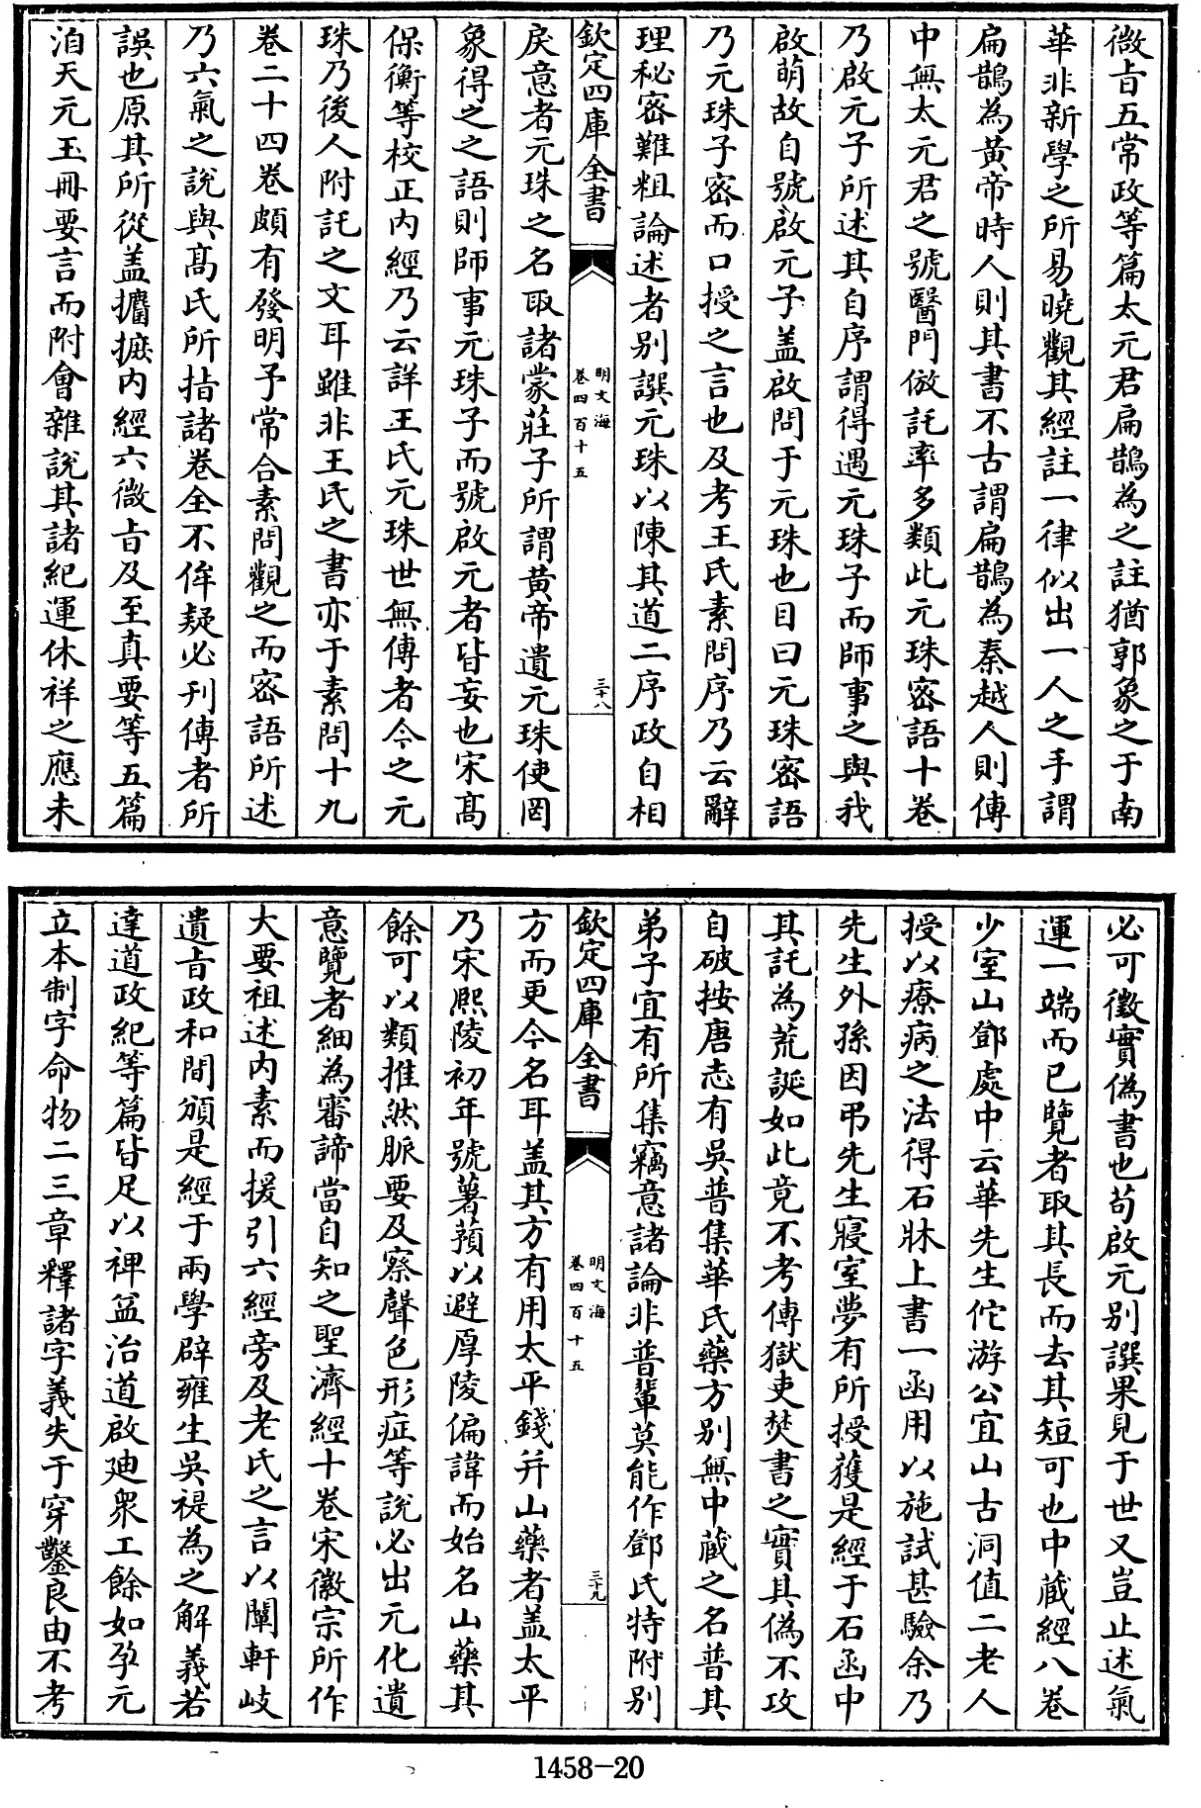 微旨五常政等篇太元君扁鵲為之註猶郭象之于南
華非新學之所易曉觀其經註一律似出一人之手謂
扁鵲為黃帝時人則其書不古謂扁鵲為秦越人則傳
中無太元君之號醫門倣託率多類此元珠密語十卷
乃啟元子所述其自序謂得遇元珠子而師事之與我
啟萌故自號啟元子盖啟問于元珠也目曰元珠密語
乃元珠子密而口授之言也及考王氏素問序乃云辭
理秘密難粗論述者別譔元珠以陳其道二序政自相
欽定四庫全書
明文海
卷四百十五
三十八
戾意者元珠之名取諸蒙莊子所謂黄帝遺元珠使罔
象得之之語則師事元珠子而號啟元者皆妄也宋髙
保衡等校正内經乃云詳王氏元珠世無傳者今之元
珠乃後人附託之文耳雖非王氏之書亦于素問十九
卷二十四卷頗有發明予常合素問觀之而密語所述
乃六氣之說與髙氏所指諸卷全不侔疑必刋傳者所
誤也原其所從盖攟摭内經六微旨及至真要等五篇
洎天元玉冊要言而附會雜說其諸紀運休祥之應未
必可徵實偽書也茍啟元別譔果見于世又豈止述氣
運一端而已覽者取其長而去其短可也中藏經八卷
少室山鄧處中云華先生佗游公宜山古洞值二老人
授以療病之法得石牀上書一函用以施試甚驗余乃
先生外孫因弔先生寢室夢有所授獲是經于石函中
其託為荒誕如此竟不考傳獄吏焚書之實其偽不攻
自破按唐志有吳普集華氏藥方別無中藏之名普其
弟子宜有所集竊意諸論非普輩莫能作鄧氏特附別
欽定四庫全書
明文海
卷四百十五
三十九
方而更今名耳盖其方有用太平錢并山藥者盖太平
乃宋熈陵初年號薯蕷以避厚陵偏諱而始名山藥其
餘可以類推然脈要及察聲色形症等說必出元化遺
意覽者細為審諦當自知之聖濟經十卷宋徽宗所作
大要祖述内素而援引六經旁及老氏之言以闡軒岐
遺旨政和間頒是經于兩學辟雍生吳禔為之解義若
達道政紀等篇皆足以裨益治道啟廸衆工餘如孕元
立本制字命物二三章釋諸字義失于穿鑿良由不考
1458-20